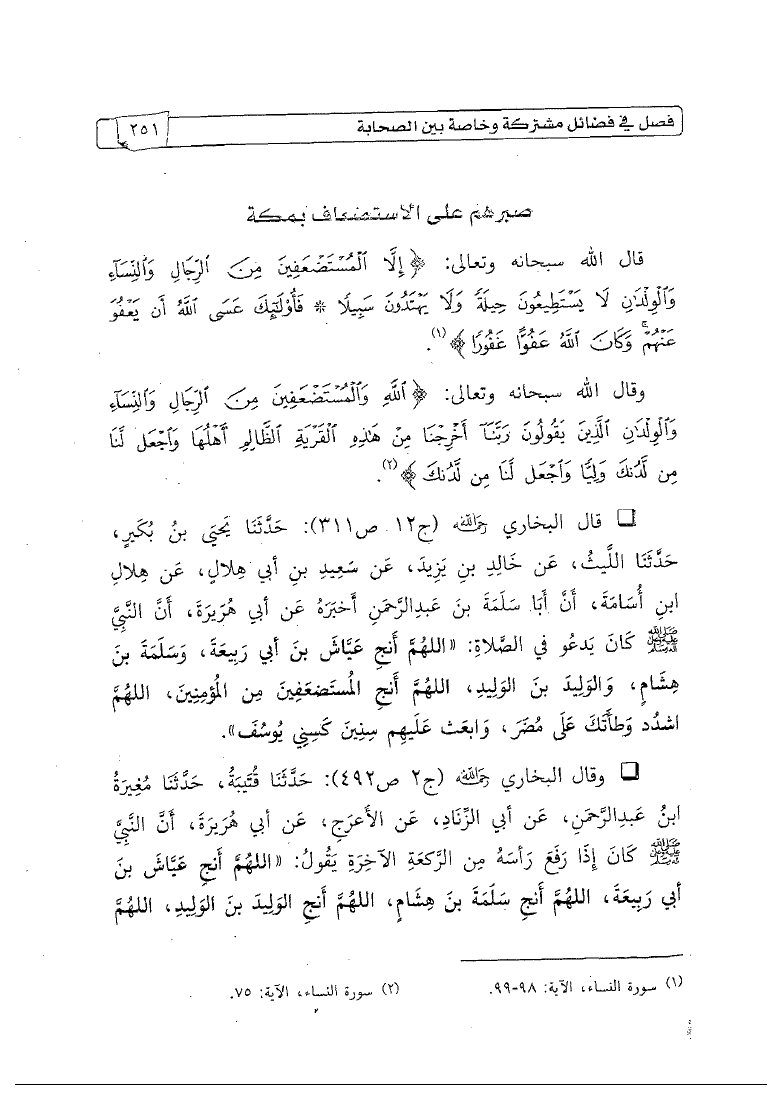 فصل في فضائل مشتركة وخاصة بين الصحابة ٢٥١
صبرهم على الاستضعاف بمكة
قال الله سبحانه وتعالى: ﴿ إِلَّا الْمُسْتَضْعَفِينَ مِنَ الرِّجَالِ وَالنِّسَاءِ
وَالْوِلْدَانِ لَا يَسْتَطِيعُونَ حِيلَةً وَلَا يَهْتَدُونَ سَبِيلًا * فَأُوْلَئِكَ عَسَى اللَّهُ أَن يَعْفُوَ
عَنْهُمْ وَكَانَ اللَّهُ عَفُوًّا غَفُورًا ﴾(١).
وقال الله سبحانه وتعالى: ﴿ اللَّهِ وَالْمُسْتَضْعَفِينَ مِنَ الرِّجَالِ وَالنِّسَاءِ
وَالْوِلْدَانِ الَّذِينَ يَقُولُونَ رَبَّنَا أَخْرِجْنَا مِنْ هَذِهِ الْقَرْيَةِ الظَّالِمِ أَهْلُهَا وَاجْعَل لَّنَا
مِن لَّدُنكَ وَلِيًّا وَاجْعَل لَّنَا مِن لَّدُنكَ ﴾(٢).
❏ قال البخاري رحمه الله (ج١٢ ص٣١١): حَدَّثَنَا يَحْيَى بنُ بُكَيرٍ،
حَدَّثَنَا اللَّيثُ، عَن خَالِدِ بنِ يَزِيدَ، عَن سَعِيدِ بنِ أَبِي هِلَالٍ، عَن هِلَالِ
ابنِ أُسَامَةَ، أَنَّ أَبَا سَلَمَةَ بنَ عَبدِالرَّحمَنِ أَخبَرَهُ عَن أَبِي هُرَيرَةَ، أَنَّ النَّبِيَّ
ﷺ كَانَ يَدعُو فِي الصَّلَاةِ: «اللهُمَّ أَنجِ عَيَّاشَ بنَ أَبِي رَبِيعَةَ، وَسَلَمَةَ بنَ
هِشَامٍ، وَالوَلِيدَ بنَ الوَلِيدِ، اللهُمَّ أَنجِ المُستَضعَفِينَ مِن المُؤمِنِينَ، اللهُمَّ
اشدُد وَطأَتَكَ عَلَى مُضَرَ، وَابعَث عَلَيهِم سِنِينَ كَسِنِي يُوسُفَ».
❏ وقال البخاري رحمه الله (ج٢ ص٤٩٢): حَدَّثَنَا قُتَيبَةُ، حَدَّثَنَا مُغِيرَةُ
ابنُ عَبدِالرَّحمَنِ، عَن أَبِي الزِّنَادِ، عَن الأَعرَجِ، عَن أَبِي هُرَيرَةَ، أَنَّ النَّبِيَّ
ﷺ كَانَ إِذَا رَفَعَ رَأسَهُ مِن الرَّكعَةِ الآخِرَةِ يَقُولُ: «اللهُمَّ أَنجِ عَيَّاشَ بنَ
أَبِي رَبِيعَةَ، اللهُمَّ أَنجِ سَلَمَةَ بنَ هِشَامٍ، اللهُمَّ أَنجِ الوَلِيدَ بنَ الوَلِيدِ، اللهُمَّ
(١) سورة النساء، الآية: ٩٨-٩٩. (٢) سورة النساء، الآية: ٧٥.